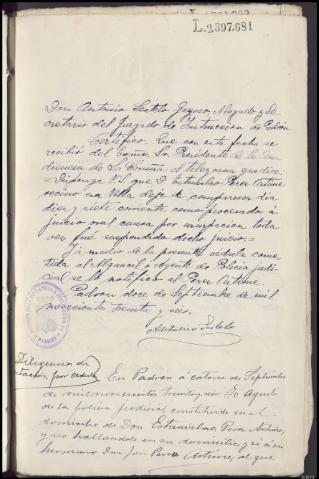 L.2397.681
Don Antonio Sotelo Gayoso Abogado y Se
cretario del Juzgado de Instrucción de Padrón
Certifico: Que con esta fecha se
recibió del Excmo. Sr. Presidente de la Au
diencia de La Coruña el telegrama que dice:
= Disponga V.S. que D. Estanislao Perez Artime
vecino esa Villa deje de comparecer dia
diez y siete corriente como procesado a
juicio oral causa por usurpación toda
vez fué suspendido dicho juicio. =
Y a medio de la presente cédula come
tida al Alguacil Agente de Policía judi
cial se le notifica al Perez Artime.
Padron doce de Septiembre de mil
novecientos treinta y seis.
Antonio Sotelo
Diligencia de
citación por cedula
En Padron á catorce de Septiembre
de mil novecientos treinta y seis. Yo Agente
de la policia judicial constituido en el
domicilio de Don Estanislao Perez Artime,
y no hallandole en su domicilio y si a su
hermano Don Jose Perez Artime, al que